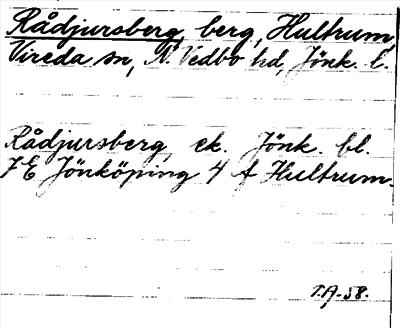 Rådjursberg, berg, Hultrum,
Vireda sn, N. Vedbo hd, Jönk. l.
Rådjursberg ek. Jönk. bl.
7E Jönköping 4 f Hultrum.
T.A-58.